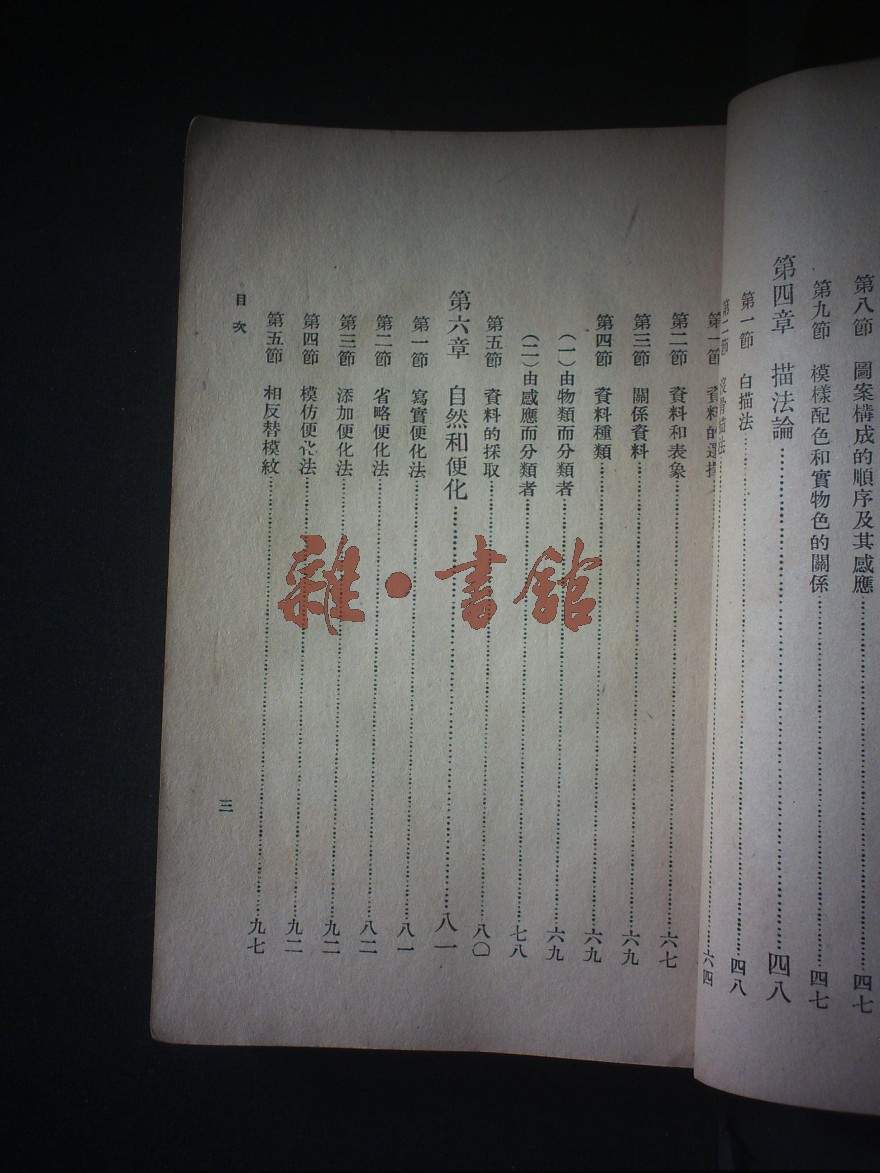 第八節　圖案構成的順序及其感應……四七
第九節　模樣配色和實物色的關係……四七
第四章　描法論……四八
第一節　白描法……四八
第二節　沒骨描法……
第一節　資料的選擇……六四
第二節　資料和表象……六七
第三節　關係資料……六九
第四節　資料種類……六九
（一）由物類而分類者……六九
（二）由感應而分類者……七八
第五節　資料的採取……八〇
第六章　自然和便化……八一
第一節　寫實便化法……八一
第二節　省略便化法……八二
第三節　添加便化法……九二
第四節　模仿便化法……九二
第五節　相反替模紋……九七
目次
三
雜·書館